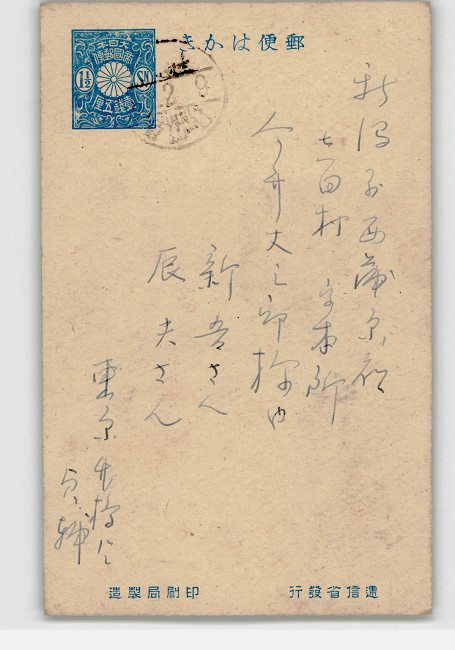 郵便はかき
大日本
帝國郵便
1½ SN
壹銭五厘
2 8
新潟縣西蒲原郡
七百村 字本所
今井丈之郎様内
新吾さん
辰夫さん
東京
遞信省發行
印刷局製造